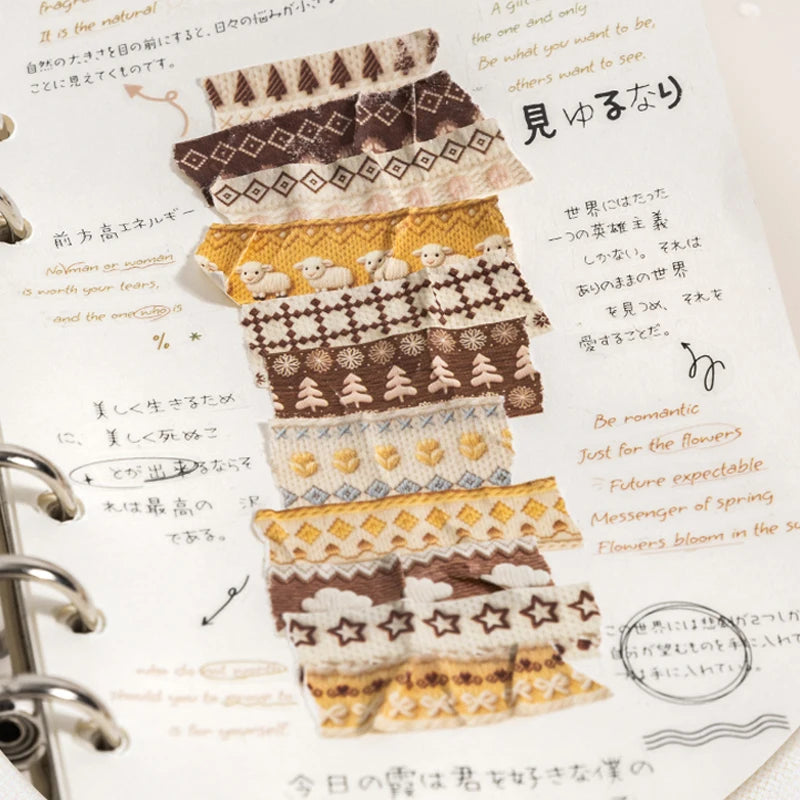 It is the natural
自然の大きさを目の前にすると、日々の悩みが小さ
ことに見えてくものです。
A gif
the one and only
Be what you want to be,
others want to see.
見ゆるなり
前方高エネルギー
No man or woman
is worth your tears,
and the one who is
%
*
世界にはたった
一つの英雄主義
しかない。それは
ありのままの世界
を見つめ、それを
愛することだ。
美しく生きるため
に、美しく死ぬこ
とが出来るならそ
れは最高の
である。
Be romantic
Just for the flowers
Future expectable
Messenger of spring
Flowers bloom in the su
この世界には悲劇が2つしか
自分が望むものを手に入れて
は手に入れてい
should you to
is for yourself.
今日の霞は君を好きな僕の